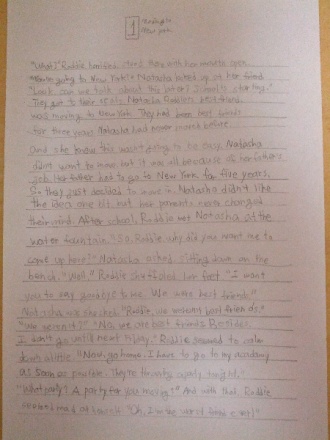 1
New York
"What?" Robbie terrified stood there with her mouth open.
"You're going to New York?" Natasha looked up at her friend
"Look, can we talk about this later?
They got to their seats. Natasha Robbie's best friend
was moving to New York. They had been best friends
for three years. Natasha had never moved before
And she knew this wasn't going to be easy. Natasha
didn't want to move but it was all because of her father's
job. Her father had to go to New York for five years,
So they just decided to move in. Natasha didn't like
the idea one bit, but her parents never changed
their mind. After school, Robbie met Natasha at the
water fountain. "So, Robbie why did you want me to
come up here?" Natasha asked sitting down on the
bench. "Well," Robbie shuffled her feet. "I want
you to say goodbye to me. We were best friends."
Natasha was shocked. "Robbie, we weren't best friends."
"We weren't?" "No, we are best friends. Besides,
I don't go until next Friday." Robbie seemed to
down a little. "Now, go home. I have to go to my academy
as soon as possible. They're throwing a party tonight."
"What party? A party for you moving?" And with that, Robbie
"Oh, I'm the worst friend ever!"